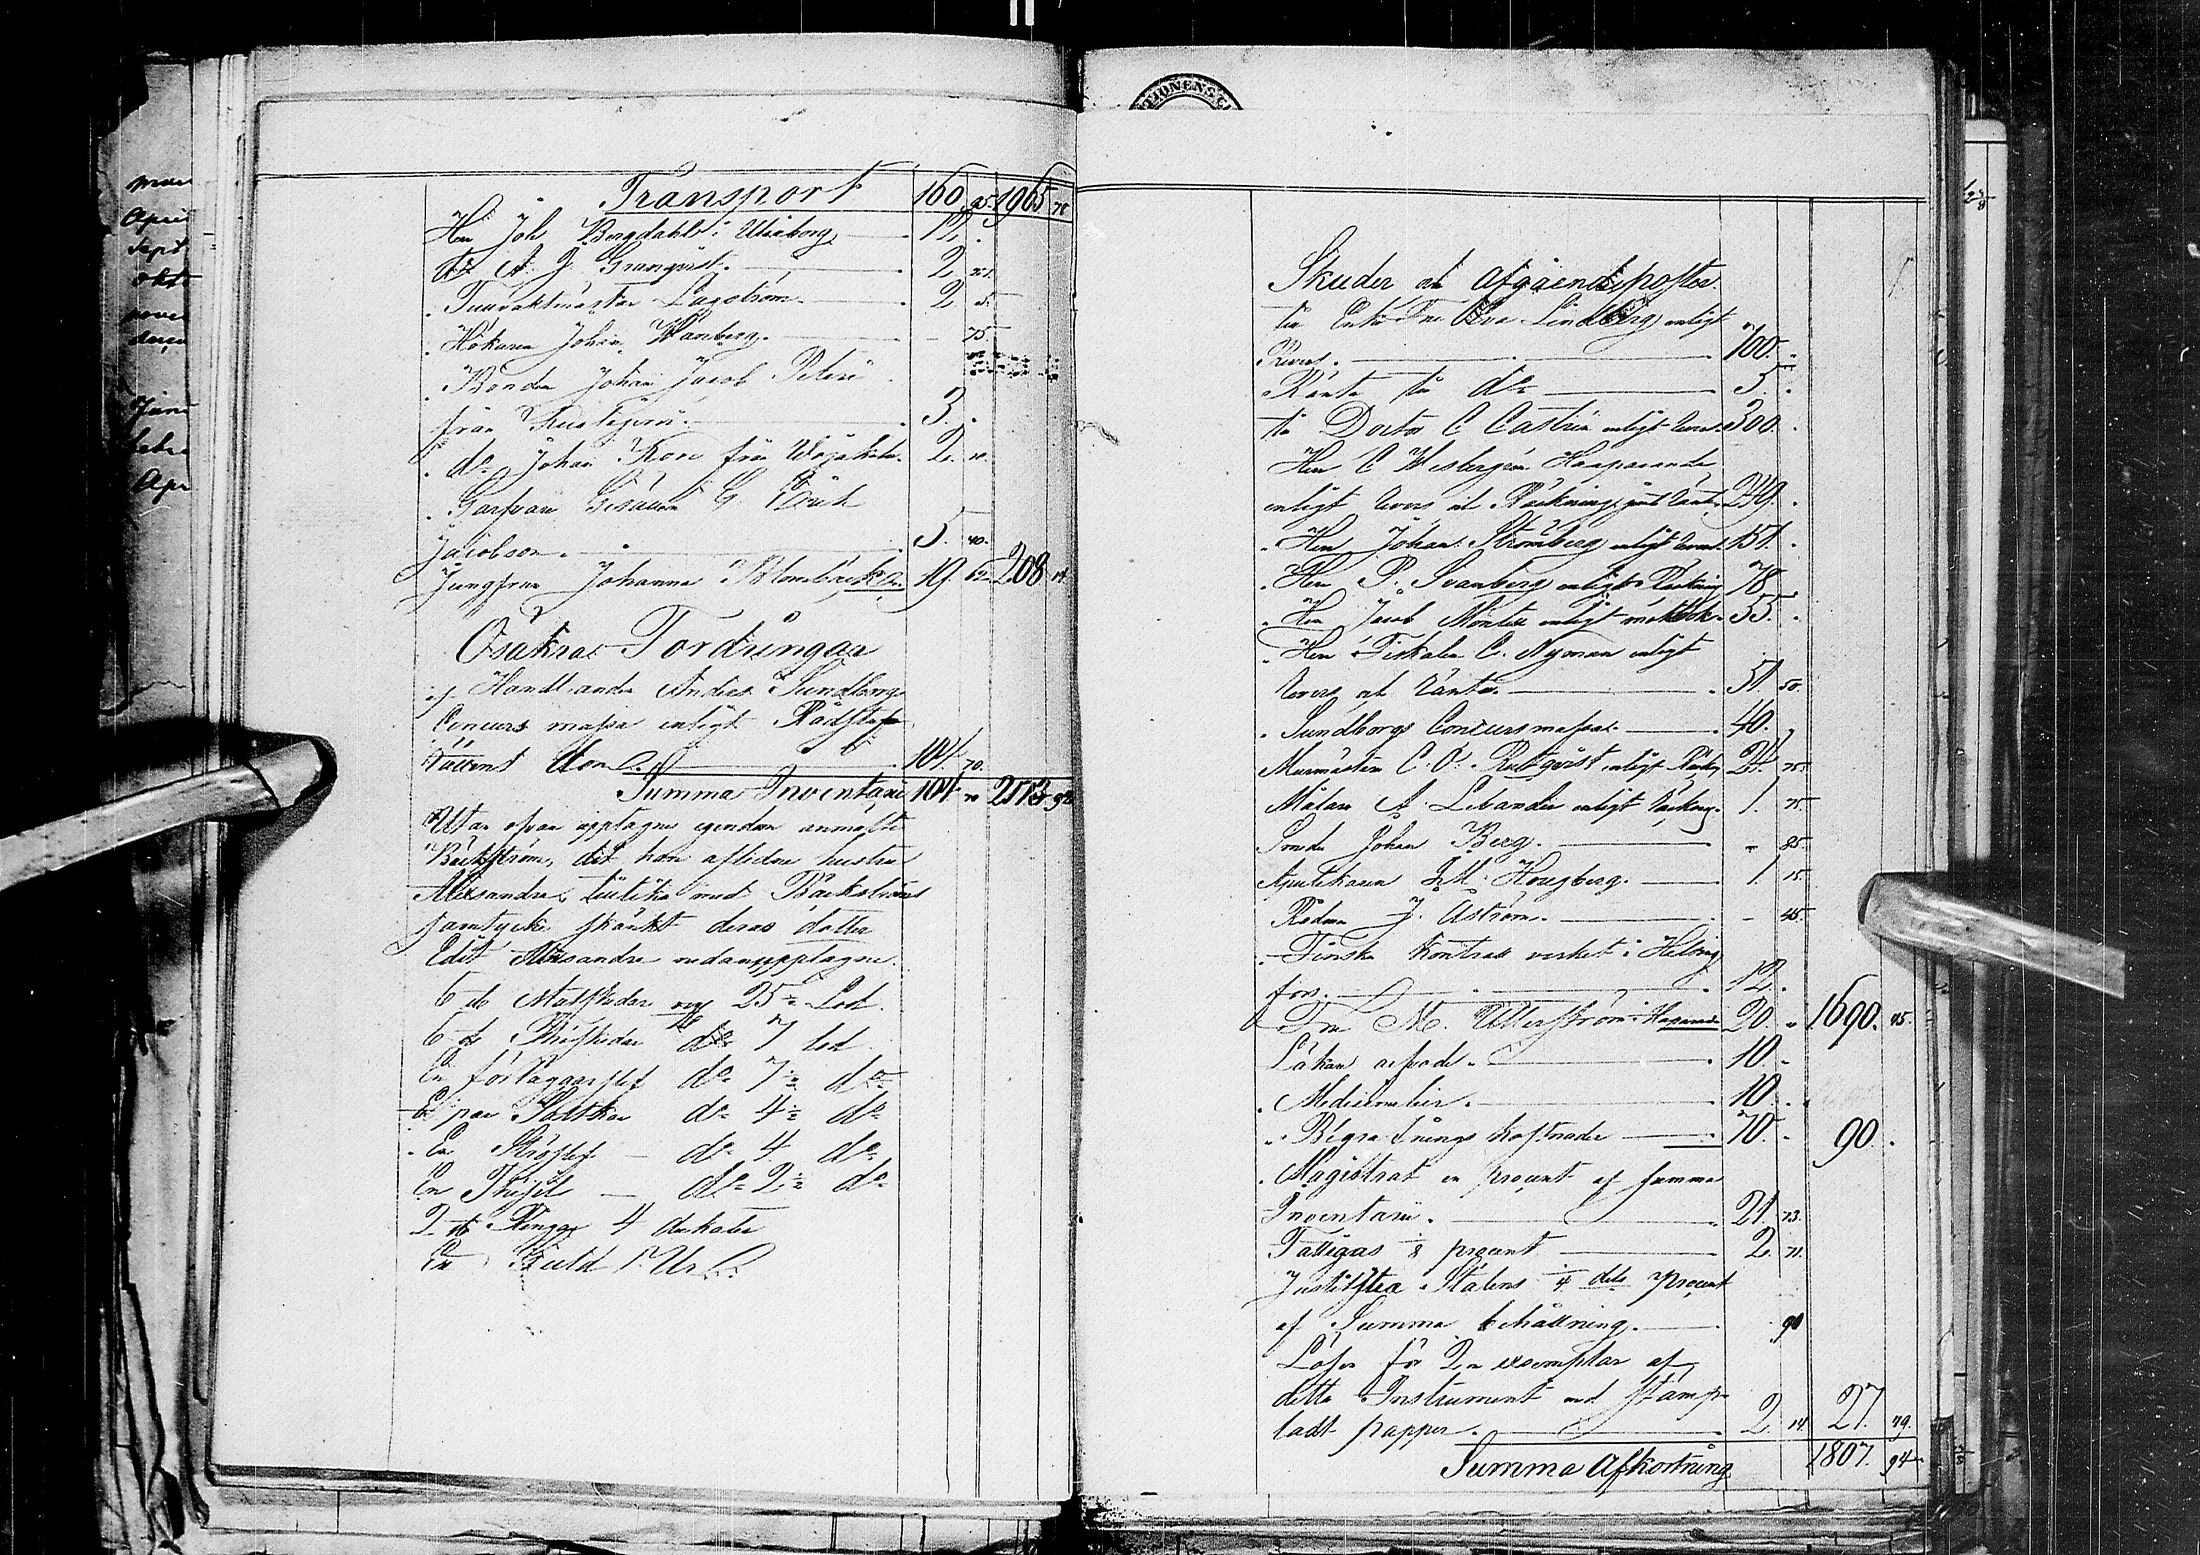 Transport 160 95 1965 78
Herr Joh Bergdahl i Uleåborg 12 .
do A. J. Granqvist. 2 21.
Tullvaktmästar Lagström. 2 5.
Hökaren Johan Wanberg. 75.
Bonden Johan Jacob
från 3. .
do Johan från 2. 10.
Garfvare Gesällen G. Erik
Jacobson. 5. 40.
Jungfrun Johanna 19 62 208 14.
Osäkra Fordringar
af Handlanden Anders Sundborgs
Concurs massa enligt Rådstufvu
Rättens dom 104 70.
Summa Inventarii 104 70 2173 92
Utan ofvan upptagne egendom anmälte
Bäckström, det han aflidne hustru
Alexandra tillika med Bäckströms
samtycke skänkt deras dotter
Edit Alexandra nedanupptagne.
6 st Matskedar vog 25 ½ Lod.
6 st Theskedar do 7 lod
En förläggarslef do 7 ½ do
Et par Saltkar do 4 ½ do
En Ströslef — do 4 do
En Thesil — do 2 ½ do
2 st Ringar 4 dukater
Et Guld Ur
Skulder och Afgåendeposter
till Enke Fru Eva Lindberg enligt
Revers. 700. .
Ränta till do 5. .
till Doctor C Castrén enligt revers 300 .
Herr C Westergren Haaparanda
enligt revers och Räkning jemt ränta 249. .
Herr Johan Strömberg enligt revers 151. .
Herr P. Svanberg enligt Räkning 78
Herr Jacob Montell enligt motbok 55. .
Herr Fiskalen C. Nyman enligt
revers och ränta. 51 50.
Sundborgs Concursmassa. 40. .
Murmästare C. O. Rutqvist enligt Räkn 24. 75.
Målare A. Lebander enligt räkning. 1. 75
Smeden Johan Berg. - 85.
Apothekaren J. M. Hougberg. 1. 15.
Rådman J. Aström. - 45.
Finska Kontroll verket i Helsing
fors. 12. .
Fru M. Utterström i Haparand 20. . 1690. 45.
Läkare arfvode. 10. .
Medicinalier. 10. .
Begrafnings kostnader 70. . 90. .
Magistrat en procent af summa
Inventarii. 21. 73.
Fattigas ⅛ procent 2. 71.
Justitiæ Statens ¼ dels procent
af Summa behållning. 91
Lösen för 2ne exemplar af
detta Instrument med stämp-
ladt papper. 2. 14. 27. 49.
Summa Afkortning 1807. 94